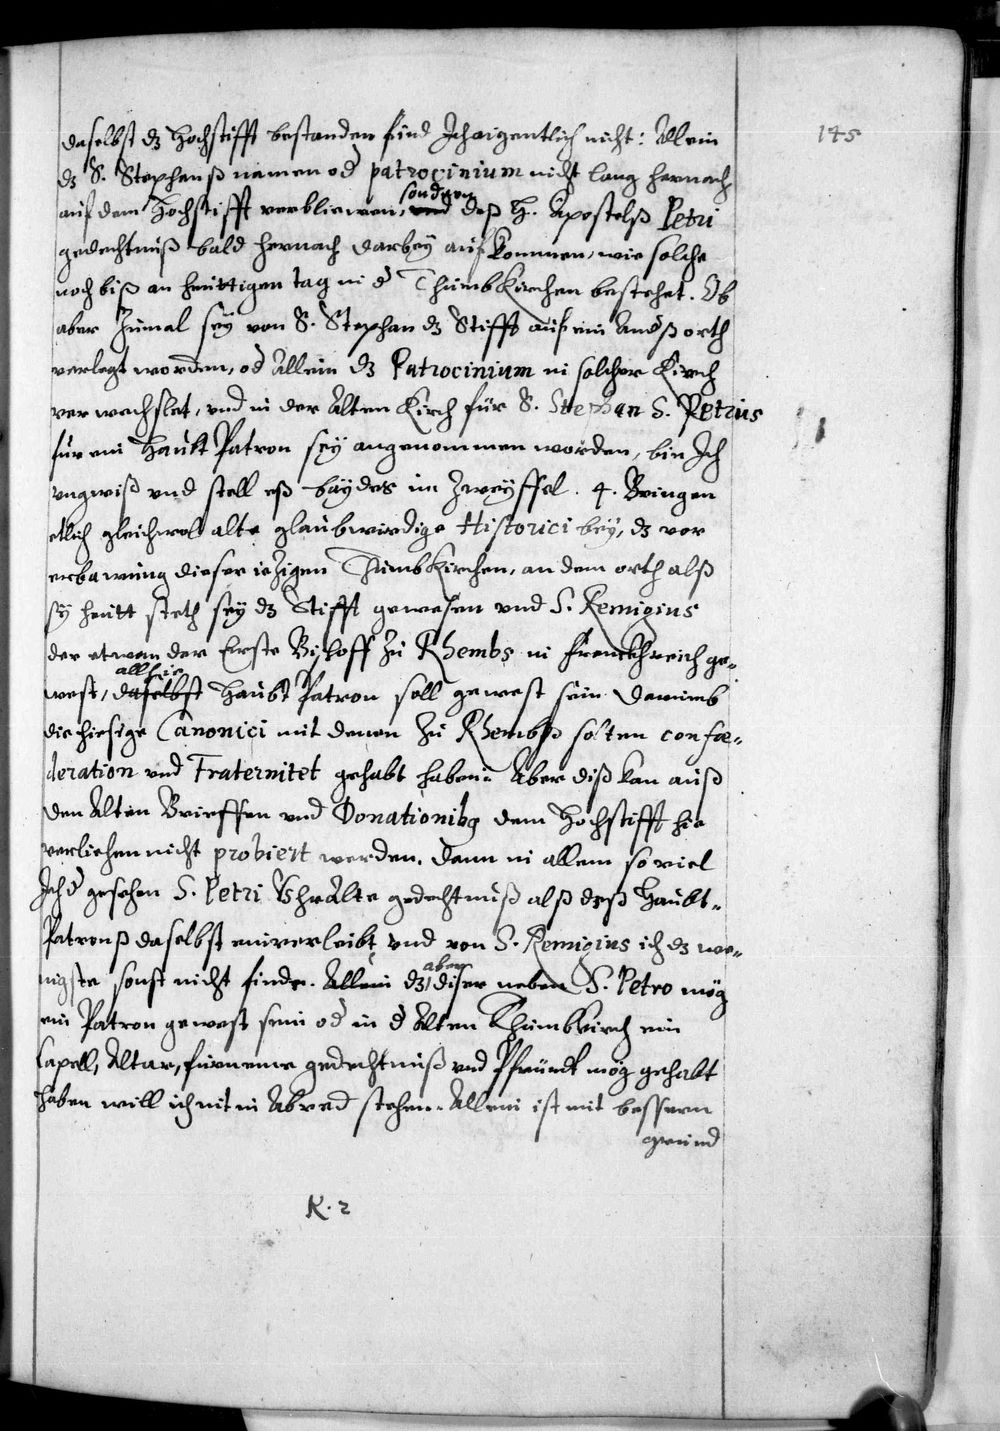 145
daselbst dz Hochstifft bestanden find Ich aigentlich nicht: Allein
dz S. Stephenß namen od patrocinium nicht lang hernach
auf dem Hochstifft verbliewen, sondern und deß H. Apostelß Petri
gedechtniß bald hernach darbey aufkommen, wie solche
noch biß an heuttigen tag in d Thumbkirchen bestehet. Ob
aber zumal sey von S. Stephan dz Stifft auf ein Andß orth
verlegt worden, od Allein dz Patrocinium in solcher Kirch
verwechslet, und in der Alten Kirch für S. Stephan S. Petrus
für ein Haubt Patron sey angenommen worden, bin Ich
ungwiß und stell eß baydes in Zweyffel. 4. Bringen
etlich gleichwol alte glaubwirdige Historici bey, dz vor
erbawung dieser iezigen Thumbkirchen, an dem orth alß
sy heutt steth sey dz Stifft gewesen und S. Remigius
der etwan der Erste Bischoff zu Rhembs in Franckhreich ge-
west, allhie daselbst Haubt Patron soll gewest sein. Darumb
die hiesige Canonici mit denen zu Rhembß solten confœ-
deration und Fraternitet gehabt haben. Aber diß kan auß
den Alten Brieffen und Donationibg dem Hochstifft hie
verliehen nicht probiert werden. Dann in allem so viel
Ich d gesehen S. Petri Uhralte gedechtnuß alß deß Haubt-
Patronß daselbst einverleibt und von S. Remigius ich dz we-
nigste sonst nicht finde. Allein dz aber diser neben S. Petro mög
ein Patron gewest sein od in d Alten Thumbkirch ein
Capell, Altar, fürneme gedechtniß und Pfründt mög gehabt
haben will ich nit in Abred stehen. Allein ist mit bessern
grund
K. 2